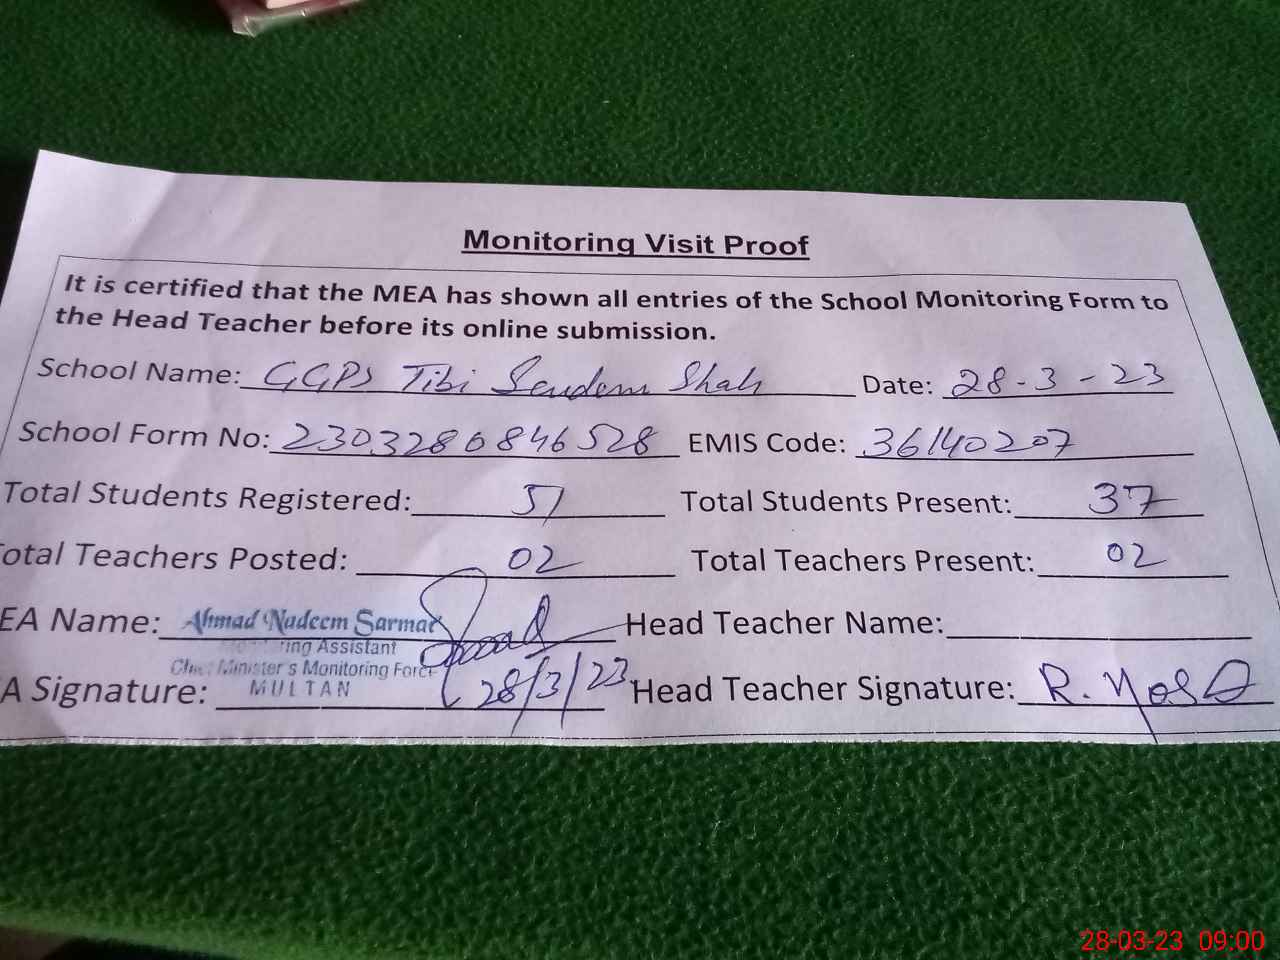 Monitoring Visit Proof
It is certified that the MEA has shown all entries of the School Monitoring Form to
the Head Teacher before its online submission.
School Name: GGPS Tibi Shah Date: 28-3-23
School Form No: 2303280846528 EMIS Code: 36140207
Total Students Registered: 51 Total Students Present: 37
otal Teachers Posted: 02 Total Teachers Present: 02
EA Name: Ahmad Nadeem Sarmad Head Teacher Name:
ring Assistant
Chief Minister's Monitoring Force
A Signature: MULTAN 28/3/23 Head Teacher Signature: R.
28-03-23 09:00